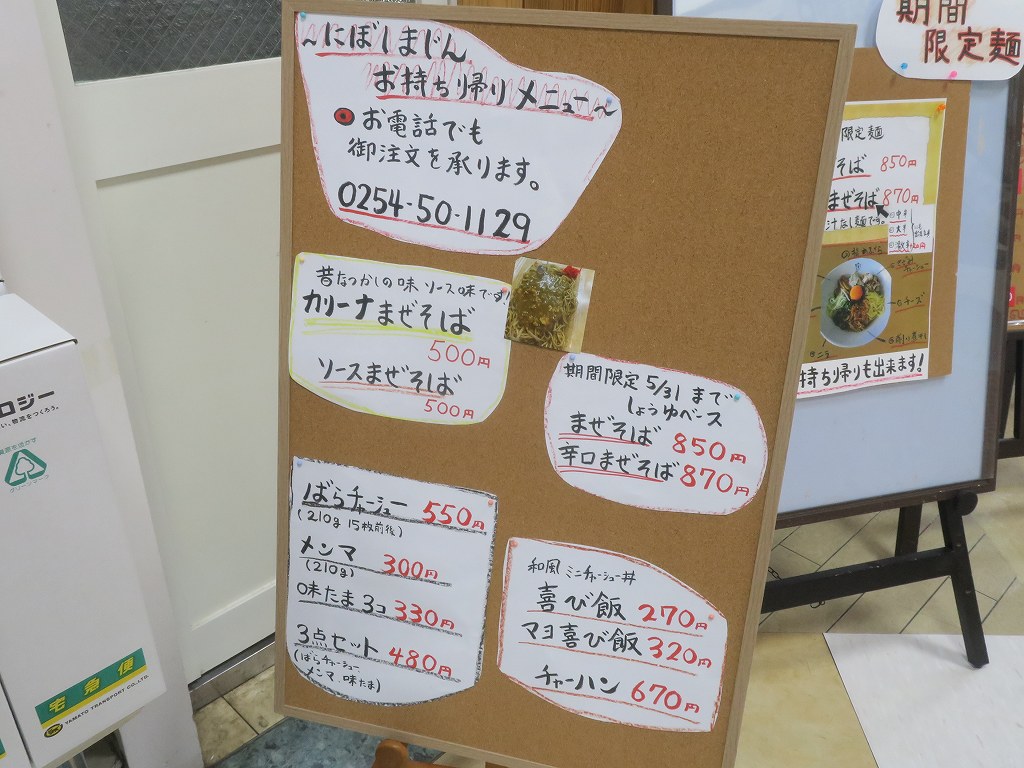 ~にぼしまじん
お持ち帰りメニュー~
お電話でも
御注文を承ります。
0254-50-1129
昔なつかしの味 ソース味です!
カリーナまぜそば
500円
ソースまぜそば
500円
期間限定 5/31 まで
しょうゆベース
まぜそば 850円
辛口まぜそば 870円
ばらチャーシュー 550円
(210g 15枚前後)
メンマ 300円
(210g)
味たま3コ 330円
3点セット 480円
(ばらチャーシュー
メンマ、味たま)
和風 ミニチャーシュー丼
喜び飯 270円
マヨ喜び飯 320円
チャーハン 670円
期間
限定麺
限定麺
そば 850円
まぜそば 870円
汁なし麺です。
チーズ
持ち帰りも出来ます!
ロジー
い、物流をつくろう。
宅急便
YAMATO TRANSPORT CO.,LTD.